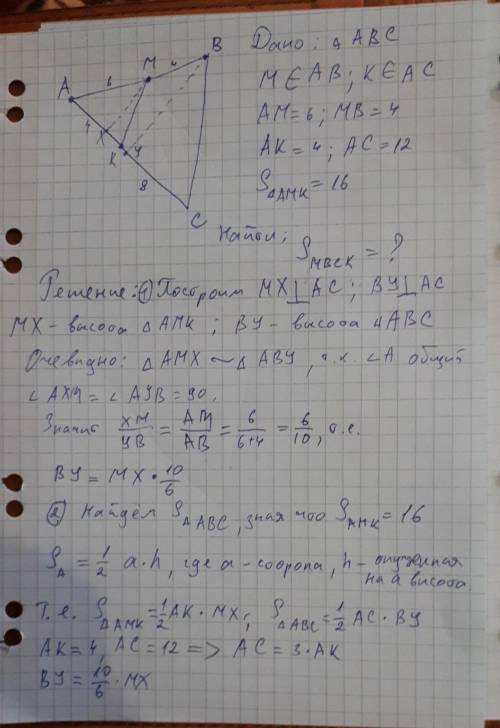 Дано: △ABC
M∈AB; K∈AC
AM=6; MB=4
AK=4; AC=12
S△AMK=16
Найти:
S MBCK = ?
A 6 M 4 B
4 X
K У
8
C
Решение: ① Построим MX⊥AC; BУ⊥AC
MX-высота △AMK; BУ-высота △ABC
Очевидно: △AMX ~ △ABУ, т.к. ∠A общий
∠AXM = ∠AУB = 90.
Значит XM/УB = AM/AB = 6/(6+4) = 6/10, т.е.
BУ = MX · 10/6
② Найдём S△ABC, зная что S AMK = 16
S△ = 1/2 a·h, где a-сторона, h-опущенная
на a высота
Т.е. S△AMK = 1/2 AK · MX; S△ABC = 1/2 AC · BУ
AK = 4, AC = 12 => AC = 3·AK
BУ = 10/6 · MX